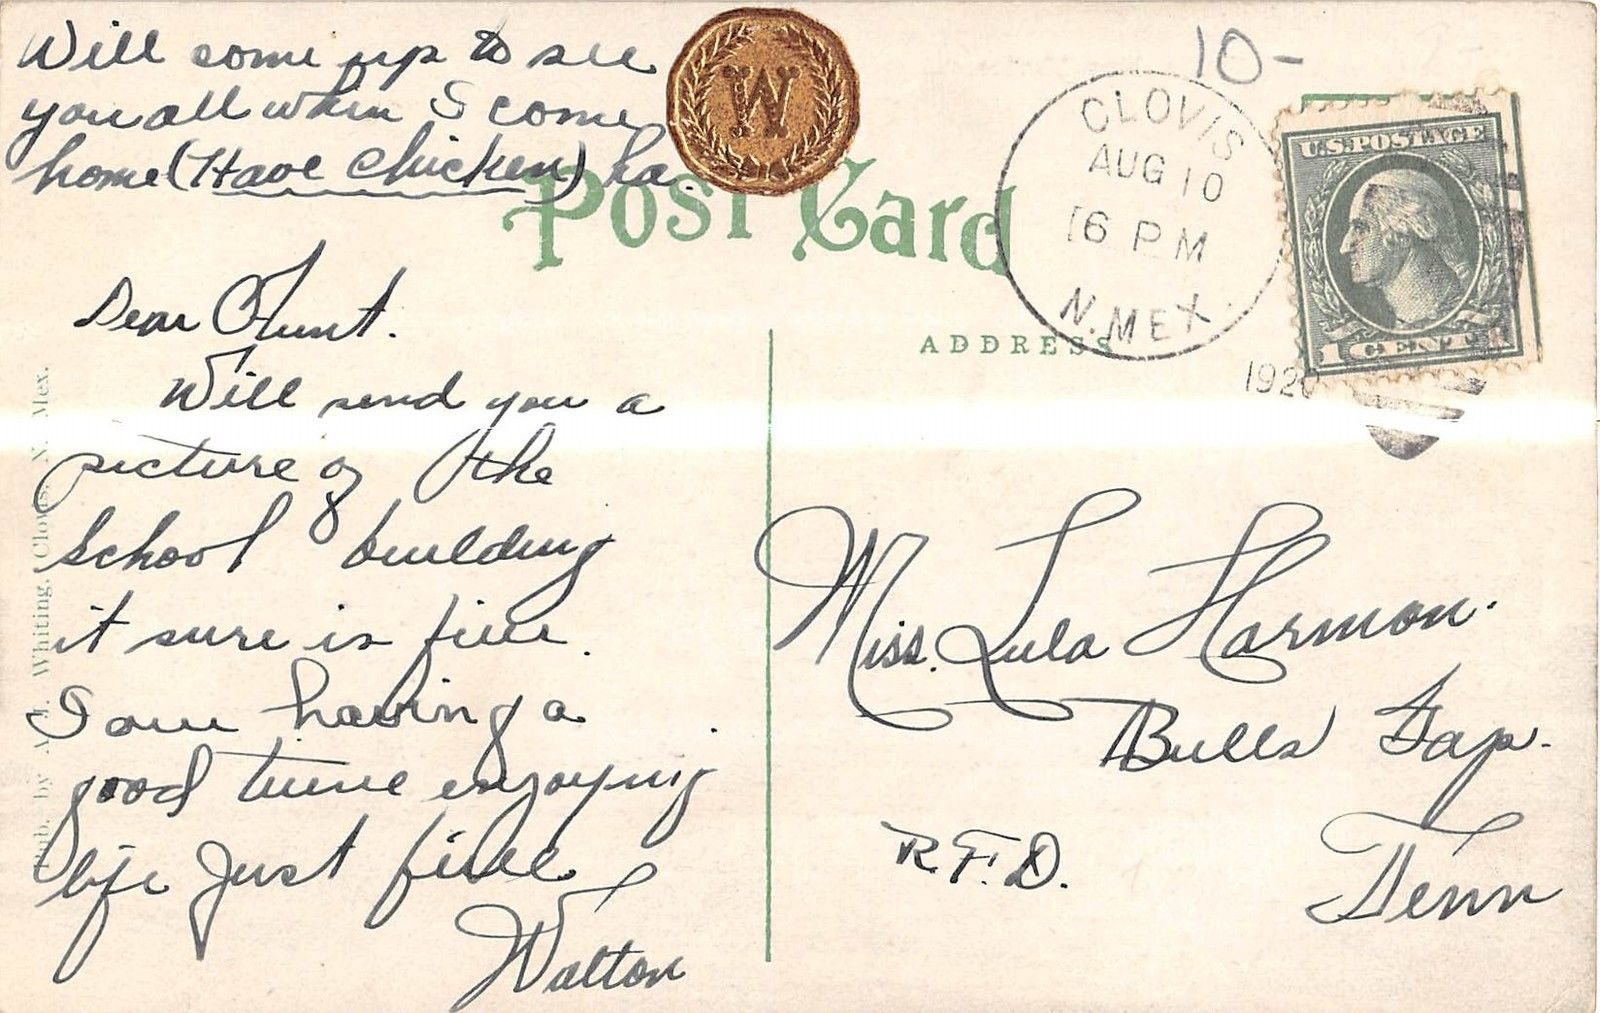 Will come up to see
you all when I come
home (Have chicken) ha
W
Post Card
10-
CLOVIS
AUG 10
6 PM
N. MEX.
1920
U.S. POSTAGE
1 CENT 1
ADDRESS
Dear Aunt.
Will send you a
picture of the
School building
it sure is fine.
I am having a
good time enjoying
life Just fine
Walton
Miss. Lula Harmon.
Bulls Gap.
R.F.D.
Tenn
Pub. by A. J. Whiting, Clovis, N. Mex.